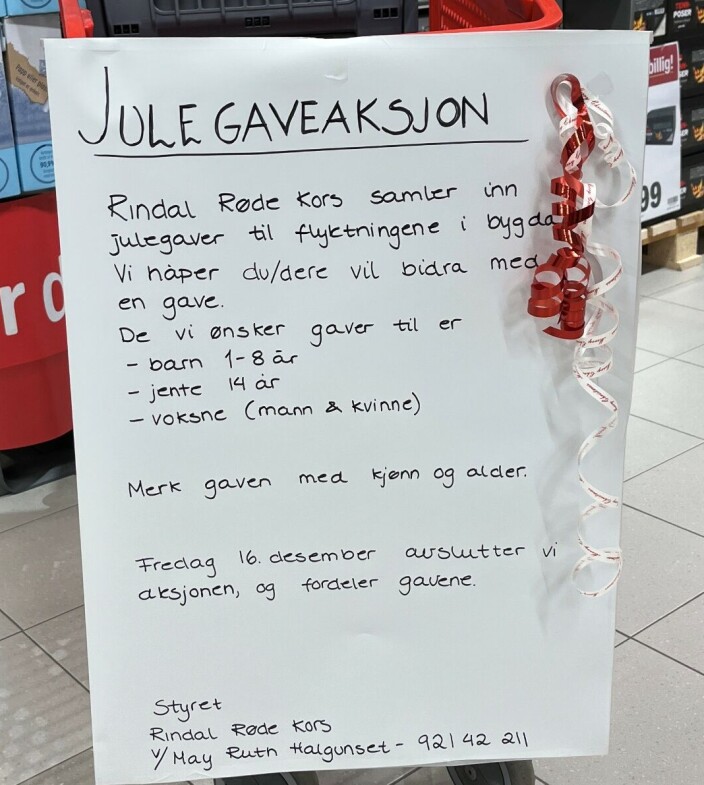 JULEGAVEAKSJON
Rindal Røde Kors samler inn
julegaver til flyktningene i bygda
Vi håper du/dere vil bidra med
en gave.
De vi ønsker gaver til er
- barn 1-8 år
- jente 14 år
- voksne (mann & kvinne)
Merk gaven med kjønn og alder.
Fredag 16. desember avslutter vi
aksjonen, og fordeler gavene.
Styret
Rindal Røde Kors
v/ May Ruth Halgunset - 921 42 211
billig!
99
r d
POSER